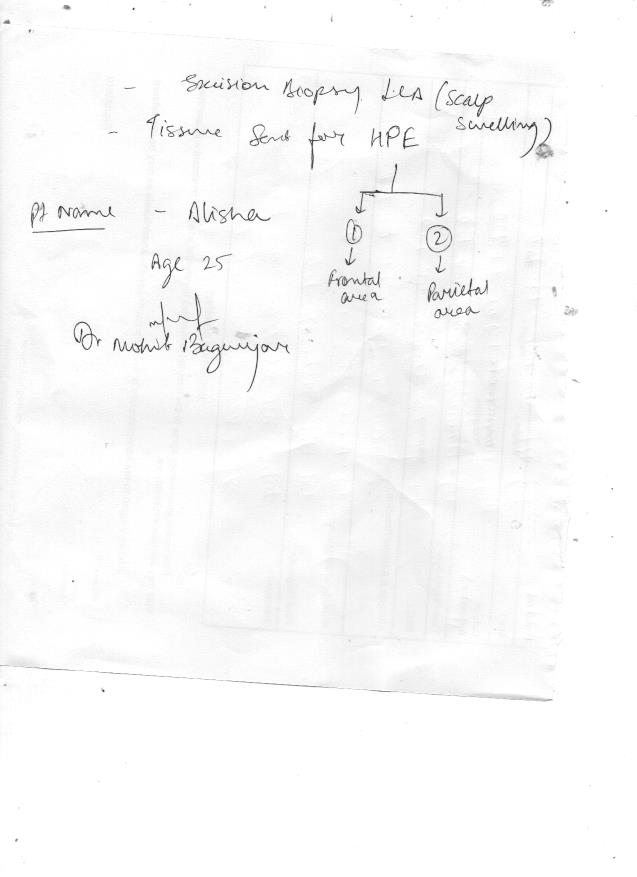 - Excision Biopsy LA (scalp swelling)
- Tissue Sent for HPE
Pt Name - Alisha
Age 25
① Frontal area
② Parietal area
Dr Mohit